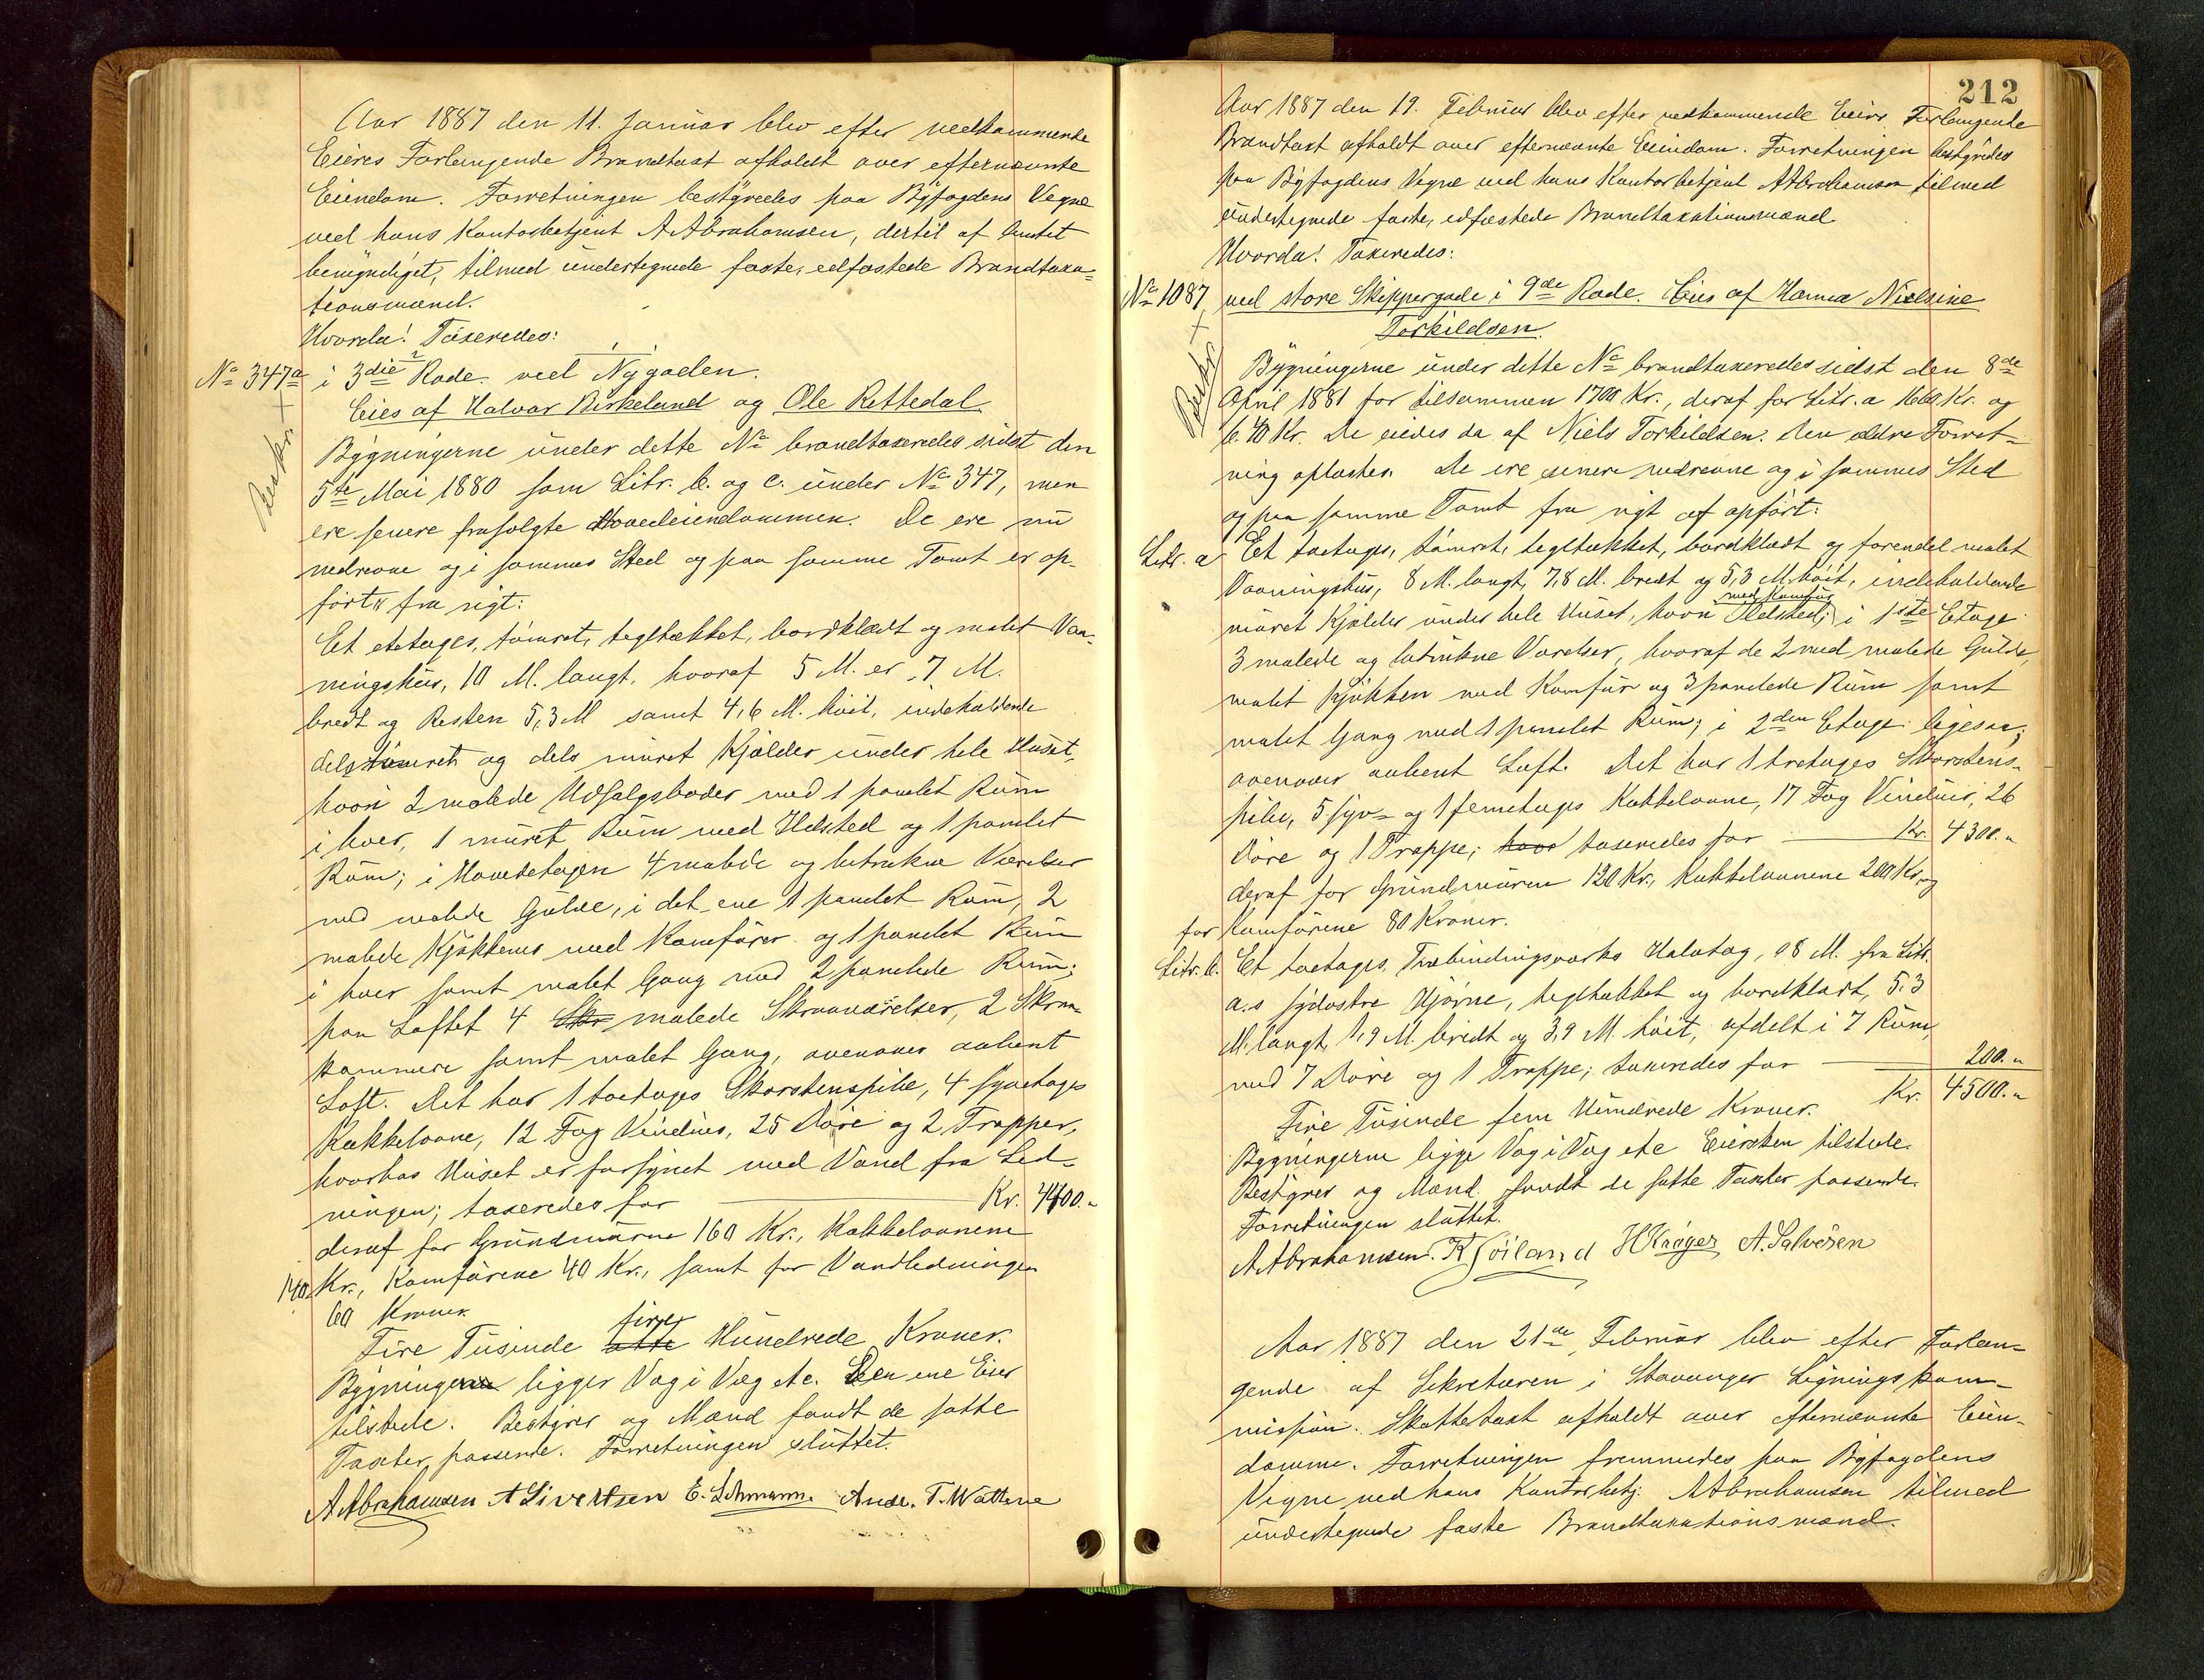 Aar 1887 den 11. Januar blev efter vedkommende
Eieres Forlangende Brandtaxt afholdt over efternævnte
Eiendom. Forretningen bestyredes paa Byfogdens Vegne
ved hans Kontorbetjent A Abrahamsen, dertil af Amtet
bemyndiget, tilmed undertegnede faste, edfæstede Brandtaxa=
tionsmænd.
Hvorda! Taxeredes:
No 347a i 3die Rode ved Nygaden.
Eies af Halvor Birkeland og Ole Rettedal
Beskr. +
Bygningerne under dette No brandtaxeredes sidst den
5te Mai 1880 som Litr. b. og c. under No 347, men
ere senere frasolgte Hovedeiendommen. De ere nu
nedrevne og i sammes Sted og paa samme Tomt er op-
ført fra nyt:
Et etetages, tømret, tegltækket, bordklædt og malet Vaa-
ningshus, 10 M. langt, hvoraf 5 M. er 7 M.
bredt og Resten 5,3 M samt 4,6 M. høit, indeholdende
dels tømret og dels muret Kjælder under hele Huset,
hvori 2 malede Udsalgsboder med 1 panelet Rum
i hver, 1 muret Rum med Ildsted og 1 panelet
Rum; i Hovedetagen 4 malede og betrukne Værelser
med malede Gulve, i det ene 1 panelet Rum, 2
malede Kjøkkener med Komfurer og 1 panelet Rum
i hver samt malet Gang med 2 panelede Rum;
paa Loftet 4 Skr malede Skraaværelser, 2 Skraa-
kammere samt malet Gang, ovenover aabent
Loft. Det har 1 toetages Skorstenspibe, 4 syvetages
Kakkelovne, 12 Fag Vinduer, 25 Døre og 2 Trapper,
hvorhos Huset er forsynet med Vand fra Led-
ningen; taxeredes for Kr. 4400.-
deraf for Grundmuren 160 Kr., Kakkelovnene
140 Kr., Komfurene 40 Kr., samt for Vandledningen
60 Kroner.
Fire Tusinde otte fire Hundrede Kroner.
Bygningen ligger Væg i Væg etc. Den ene Eier
tilstede. Bestyrer og Mænd fandt de satte
Taxter passende. Forretningen sluttet.
A Abrahamsen A Sivertsen E. Lehmann. Andr. T. Wattne
212
Aar 1887 den 19. Februar blev efter vedkommende Eiers Forlangende
Brandtaxt afholdt over efternævnte Eiendom. Forretningen bestyredes
paa Byfogdens Vegne ved hans Kontorbetjent A Abrahamsen tilmed
undertegnede faste, edfæstede Brandtaxationsmænd
Hvorda! Taxeredes:
No 1087 ved store Skippergade i 9de Rode. Eies af Hanna Nielsine
Torkildsen
Beskr +
Bygningerne under dette No brandtaxeredes sidst den 8de
April 1881 for tilsammen 1700 Kr., deraf for Litr. a 1660 Kr. og
b. 40 Kr. De eiedes da af Niels Torkildsen. Den ældre Forret-
ning oplæstes. De ere senere nedrevne og i sammes Sted
og paa samme Tomt fra nyt af opført:
Litr. a Et toetages, tømret, tegltækket, bordklædt og forendel malet
Vaaningshus, 8 M. langt, 7,8 M. bredt og 5,3 M. høit, indeholdende
muret Kjælder under hele Huset, hvori Ildsted med Komfur; i 1ste Etage
3 malede og betrukne Værelser, hvoraf de 2 med malede Gulve,
malet Kjøkken med Komfur og 3 panelede Rum samt
malet Gang med 1 panelet Rum; i 2den Etage ligesaa;
ovenover aabent Loft. Det har 1 tretages Skorstens-
pibe, 5 syv- og 1 femetages Kakkelovne, 17 Fag Vinduer, 26
Døre og 1 Trappe; hvor taxeredes for Kr. 4300.-
deraf for Grundmuren 120 Kr., Kakkelovnene 200 Kr. og
for Komfurene 80 Kroner.
Litr. b. Et toetages Træbindingsværks Halvtag, 0,8 M. fra Litr.
a.s sydostre Hjørne, tegltækket og bordklædt, 5,3
M. langt, 1,9 M. bredt og 3,9 M. høit, afdelt i 7 Rum,
med 7 Døre og 1 Trappe; taxeredes for 200.-
Kr. 4500.-
Fire Tusinde fem Hundrede Kroner.
Bygningerne ligge Væg i Væg etc Eiersken tilstede.
Bestyrer og Mænd fandt de satte Taxter passende.
Forretningen sluttet.
A Abrahamsen. K Soiland H Krøger A. Salvesen
Aar 1887 den 21de Februar blev efter Forlan=
gende af Sekretæren i Stavanger Ligningskom-
mission Skattetaxt afholdt over efternævnte Eien-
domme. Forretningen fremmedes paa Byfogdens
Vegne ved hans Kontorbetj. A Abrahamsen tilmed
undertegnede faste Brandtaxationsmænd.